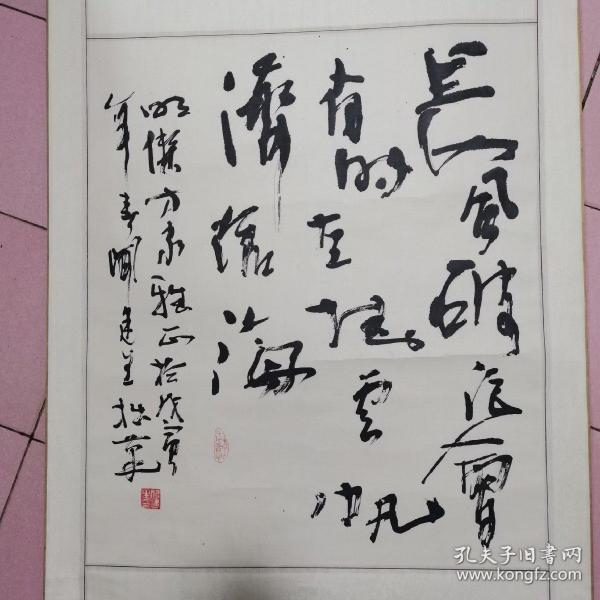 長風破浪會
有時直挂雲帆
濟滄海
方家雅正於戊寅
年春 建 拙筆
孔夫子旧书网
www.kongfz.com